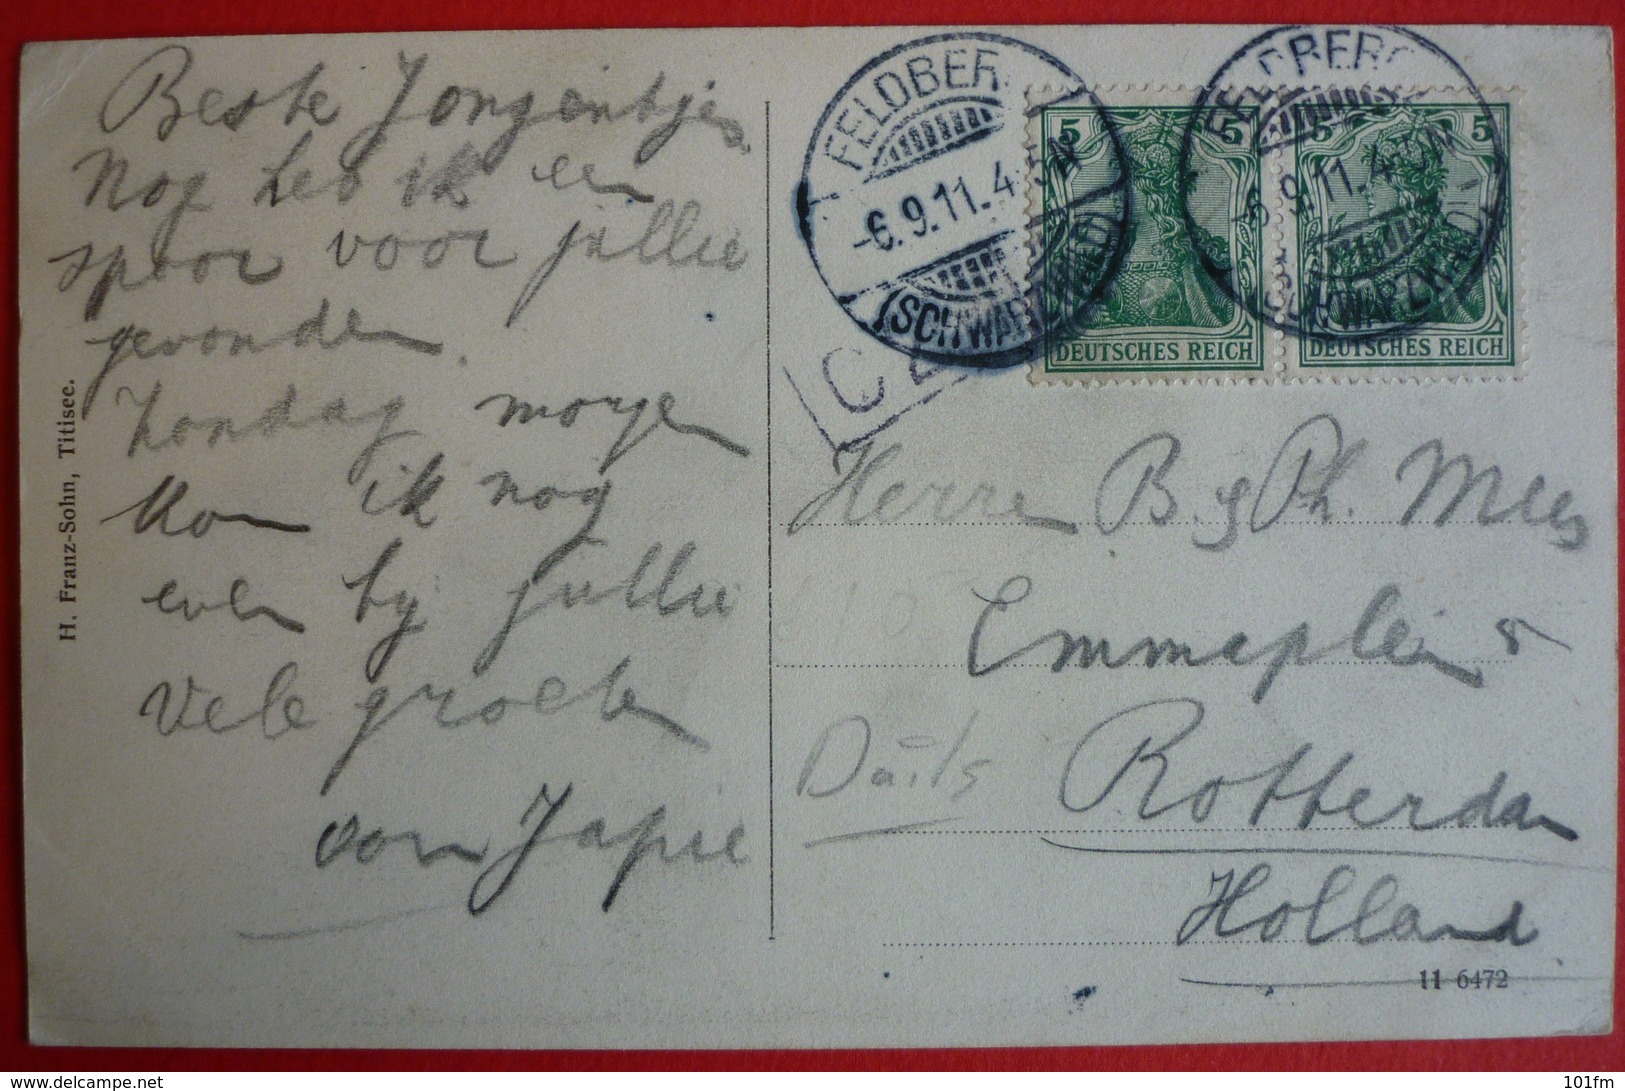 Beste Jongentjes
Nog heb ik een
spoor voor jullie
gevonden.
Zondag morgen
kom ik nog
even by jullie
Vele groeten
oom Japie
H. Franz-Sohn, Titisee.
FELDBERG
-6.9.11.4-5N
(SCHWARZWALD)
FELDBERG
-6.9.11.4-5N
(SCHWARZWALD)
5 5
DEUTSCHES REICH
5 5
DEUTSCHES REICH
Herren B. & Ph. Mees
Emmaplein 8
Rotterdam
Duits
Holland
11 6472
www.delcampe.net
101fm